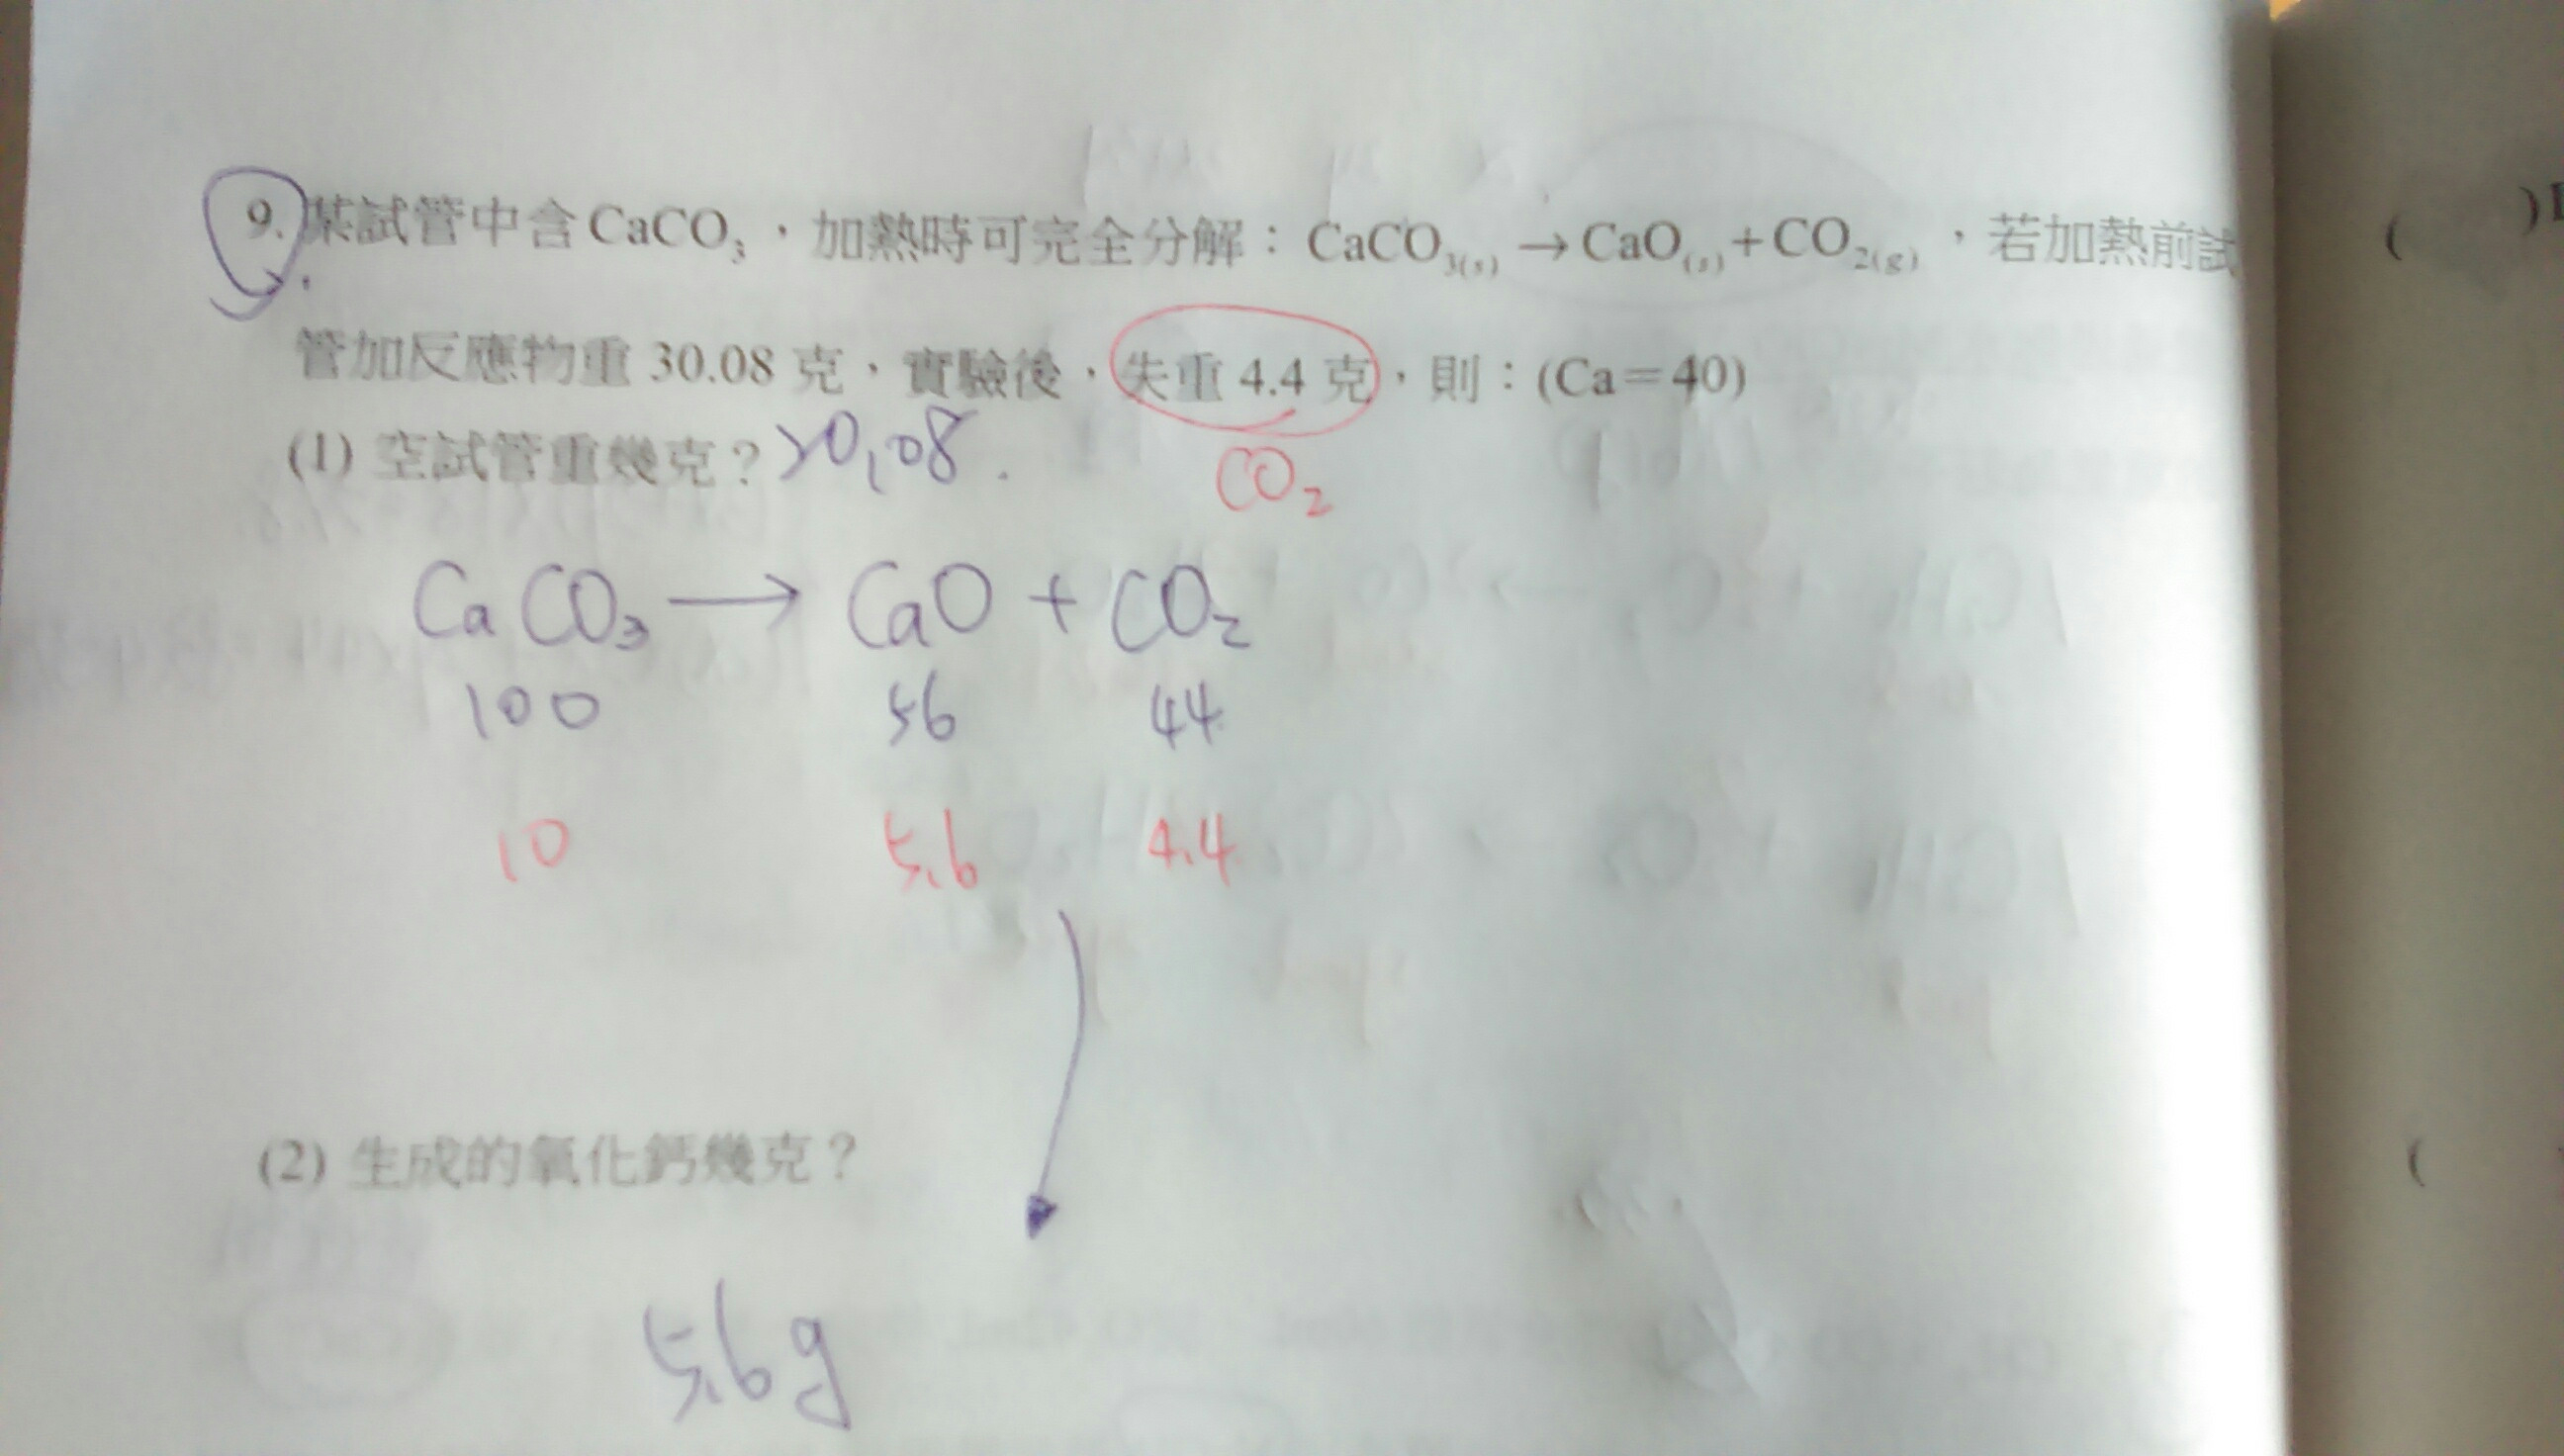 9. 某試管中含CaCO₃，加熱時可完全分解：CaCO₃(s)→CaO(s)+CO₂(g)，若加熱前試
管加反應物重 30.08 克，實驗後，失重 4.4 克，則：(Ca=40)
(1) 空試管重幾克？20.08
CO₂
CaCO₃ → CaO + CO₂
100 56 44
10 5.6 4.4
(2) 生成的氧化鈣幾克？
5.6g